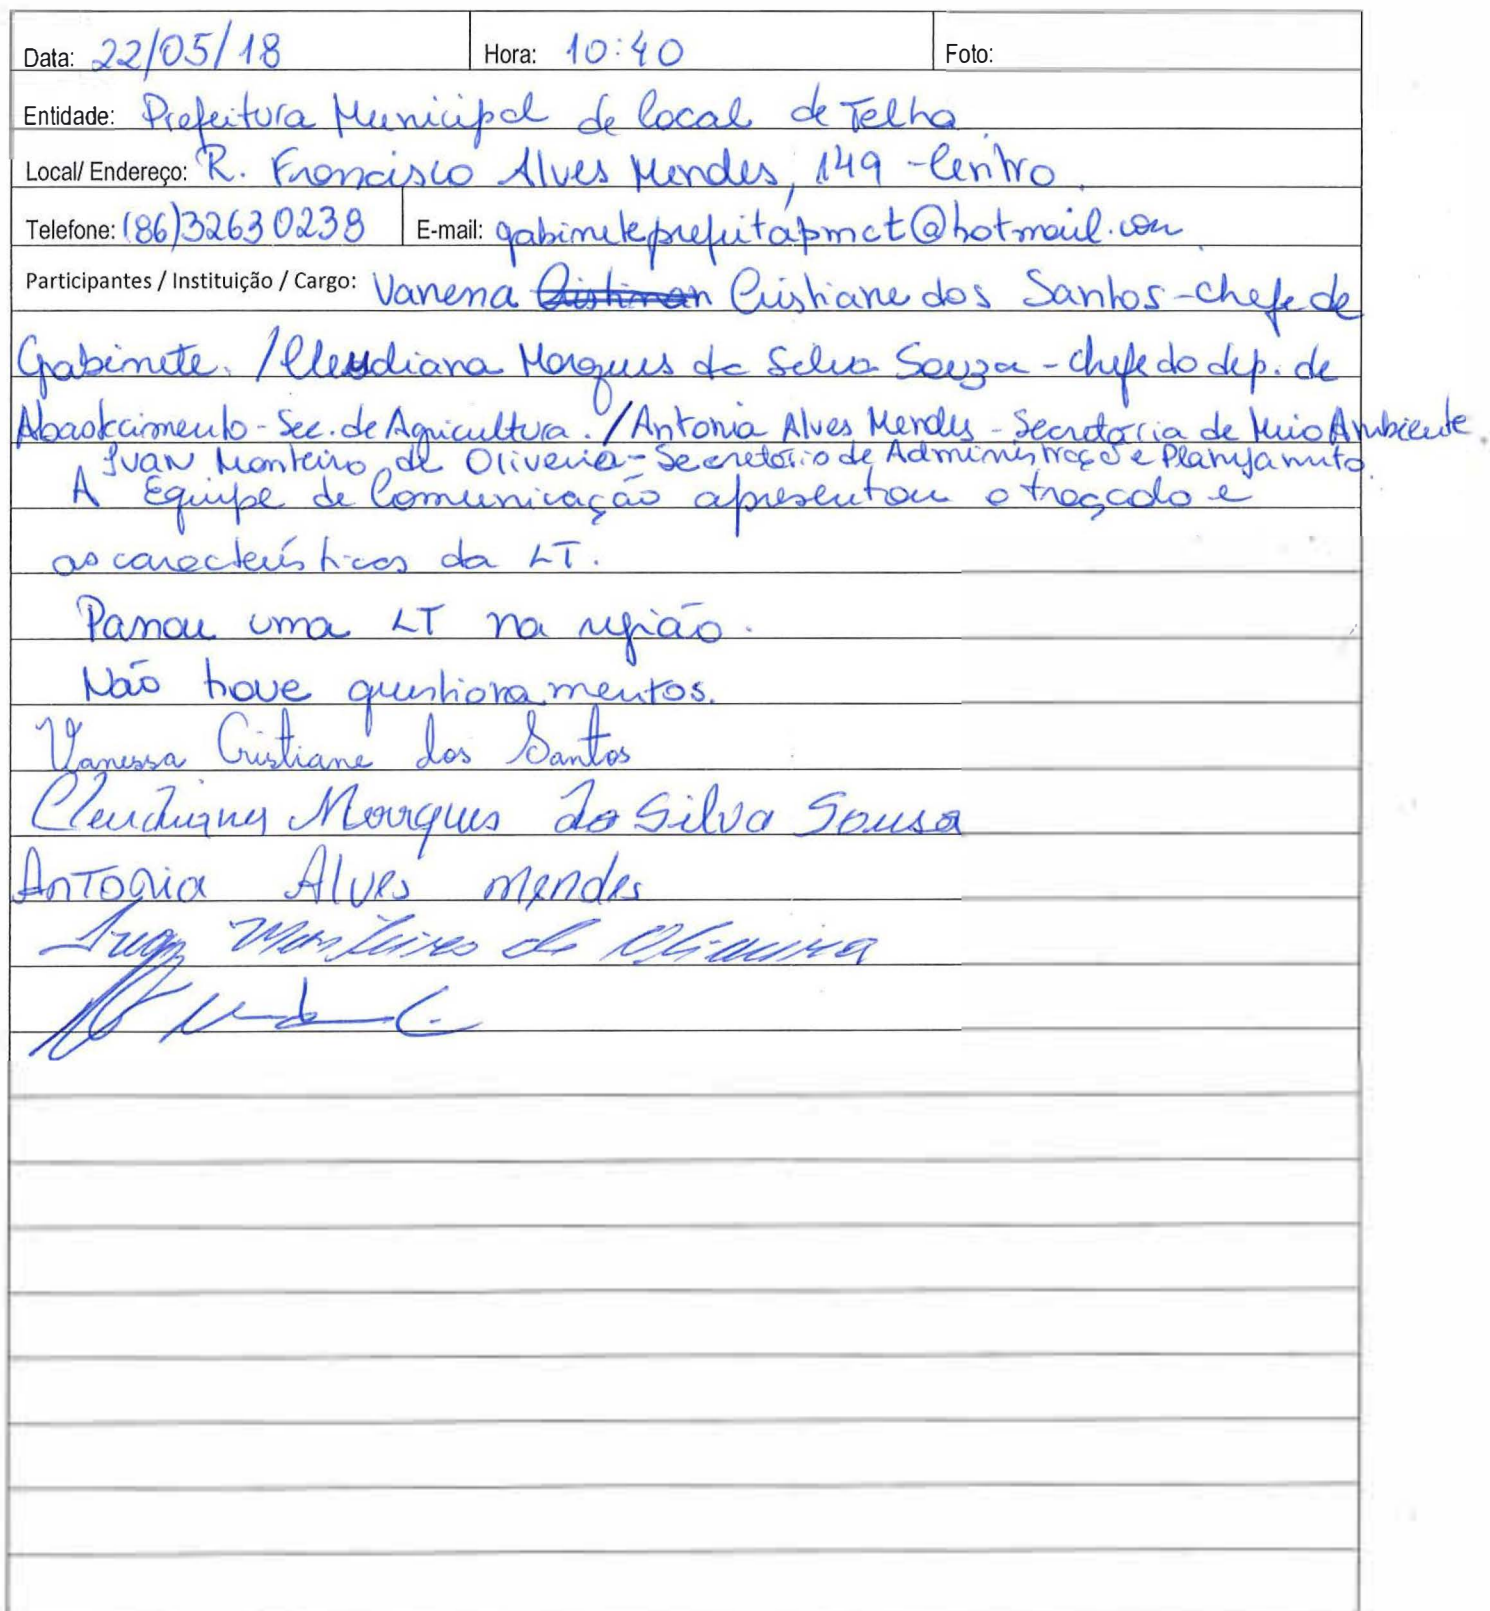 Data: 22/05/18 Hora: 10:40 Foto:
Entidade: Prefeitura Municipal de local de Telha
Local/ Endereço: R. Francisco Alves Mendes, 149 - Centro.
Telefone: (86)32630238 E-mail: gabineteprefeitapmct@hotmail.com
Participantes / Instituição / Cargo: Vanessa Cristiane dos Santos - chefe de
Gabinete. / Cleudiana Marques da Silva Souza - chefe do dep. de
Abastecimento - Sec. de Agricultura. / Antonia Alves Mendes - Secretária de Meio Ambiente.
Ivan Monteiro de Oliveira - Secretário de Administração e Planejamento.
A Equipe de Comunicação apresentou o traçado e
as características da LT.
Passou uma LT na região.
Não houve questionamentos.
Vanessa Cristiane dos Santos
Cleudiana Marques da Silva Sousa
Antonia Alves mendes
Ivan Monteiro de Oliveira